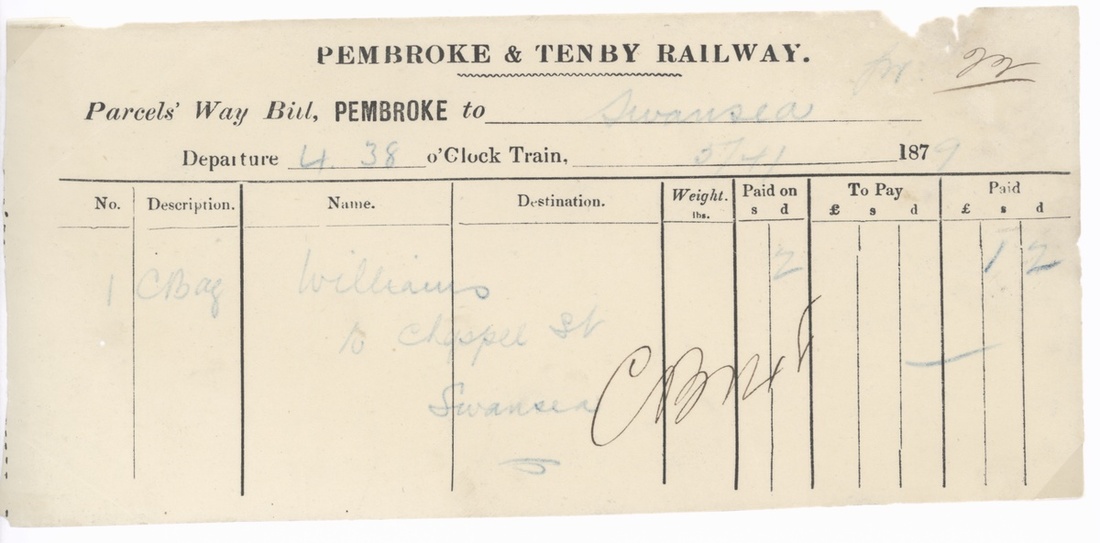 PEMBROKE & TENBY RAILWAY. 22
Parcels' Way Bill, PEMBROKE to Swansea
Departure 4. 38 o'Clock Train, 1879
No. Description. Name. Destination. Weight. lbs. Paid on s d To Pay £ s d Paid £ s d
1 C Bag Williams 2 1 2
Chapel St
Swansea